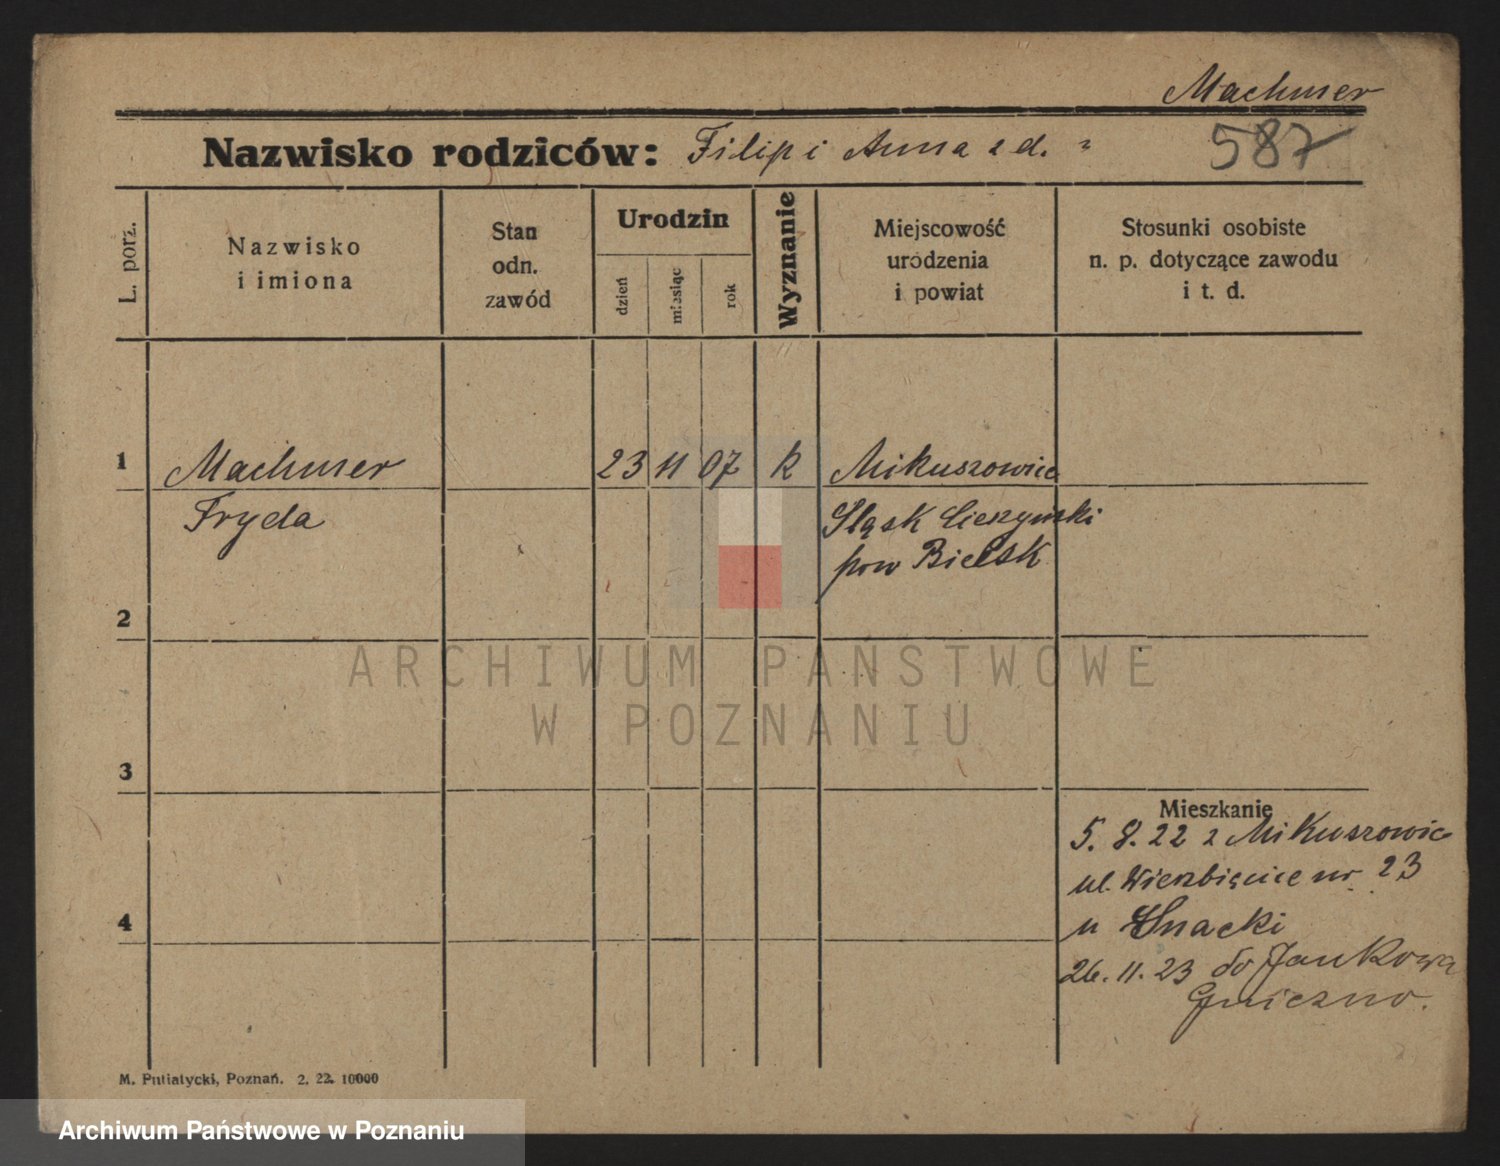 Machmer
Nazwisko rodziców: Filip i Anna z d. ?
587
L. porz.
Nazwisko
i imiona
Stan
odn.
zawód
Urodzin
dzień
miesiąc
rok
Wyznanie
Miejscowość
urodzenia
i powiat
Stosunki osobiste
n. p. dotyczące zawodu
i t. d.
1 Machmer 23 11 07 k Mikuszowice
Fryda Śląsk Cieszynski
pow Bielsk
2
ARCHIWUM PAŃSTWOWE
W POZNANIU
3
Mieszkanie
5. 8. 22 z Mikuszowic
ul. Wierzbięcice nr. 23
4 u Snacki
26. 11. 23 do Jankowa
Gniezno.
M. Putiatycki, Poznań. 2. 22. 10000
Archiwum Państwowe w Poznaniu